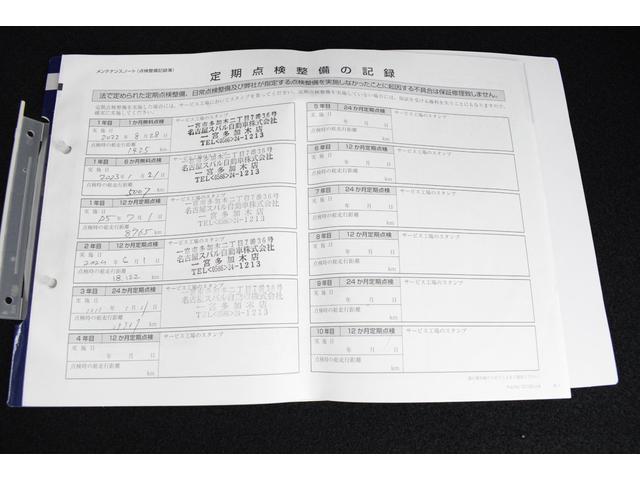 メンテナンスノート(点検整備記録簿)
定期点検整備の記録
法で定められた定期点検整備、日常点検整備及び弊社が指定する点検整備を実施しなかったことに起因する不具合は保証修理致しません。
1年目 1か月無料点検 サービス工場のスタンプ
実施日
2022年8月28日
点検時の総走行距離
1425 km
一宮市多加木二丁目7番36号
名古屋スバル自動車株式会社
一宮多加木店
TEL<0586>24-1213
1年目 6か月無料点検 サービス工場のスタンプ
実施日
2023年1月21日
点検時の総走行距離
5007 km
一宮市多加木二丁目7番36号
名古屋スバル自動車株式会社
一宮多加木店
TEL<0586>24-1213
1年目 12か月定期点検 サービス工場のスタンプ
実施日
05年7月1日
点検時の総走行距離
8765 km
一宮市多加木二丁目7番36号
名古屋スバル自動車株式会社
一宮多加木店
TEL<0586>24-1213
2年目 12か月定期点検 サービス工場のスタンプ
実施日
2024年6月1日
点検時の総走行距離
18,122 km
一宮市多加木二丁目7番36号
名古屋スバル自動車株式会社
一宮多加木店
TEL<0586>24-1213
3年目 24か月定期点検 サービス工場のスタンプ
実施日
点検時の総走行距離
km
一宮市多加木二丁目7番36号
名古屋スバル自動車株式会社
一宮多加木店
TEL<0586>24-1213
4年目 12か月定期点検 サービス工場のスタンプ
実施日
年 月 日
点検時の総走行距離
km
5年目 24か月定期点検 サービス工場のスタンプ
実施日
年 月 日
点検時の総走行距離
km
6年目 12か月定期点検 サービス工場のスタンプ
実施日
年 月 日
点検時の総走行距離
km
7年目 24か月定期点検 サービス工場のスタンプ
実施日
年 月 日
点検時の総走行距離
km
8年目 12か月定期点検 サービス工場のスタンプ
実施日
年 月 日
点検時の総走行距離
km
9年目 24か月定期点検 サービス工場のスタンプ
実施日
年 月 日
点検時の総走行距離
km
10年目 12か月定期点検 サービス工場のスタンプ
実施日
年 月 日
点検時の総走行距離
km